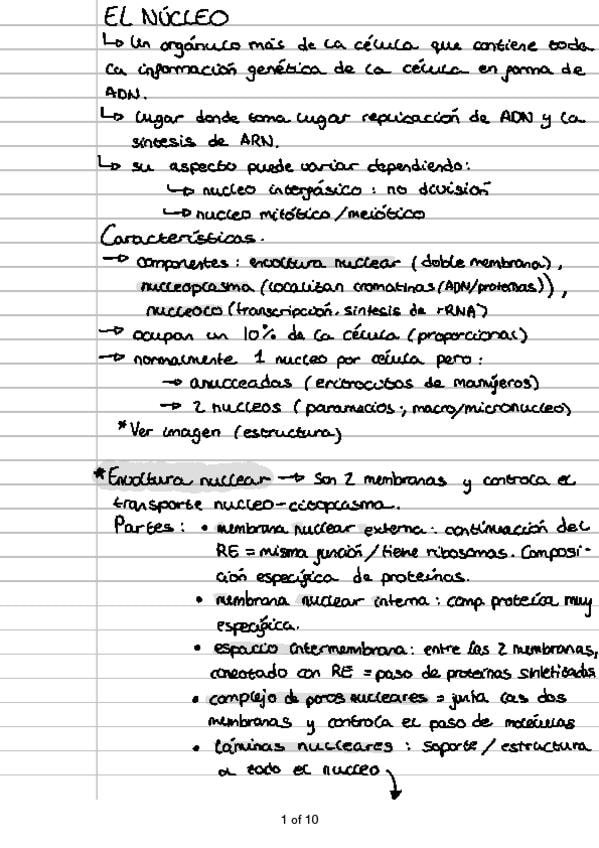 EL NÚCLEO
↳ Un orgánulo más de la célula que contiene toda
la información genética de la célula en forma de
ADN.
↳ Lugar donde toma lugar replicación de ADN y la
síntesis de ARN.
↳ su aspecto puede variar dependiendo:
↳ nucleo interfásico : no división
↳ nucleo mitótico / meiótico
Características.
→ componentes : envoltura nuclear (doble membrana),
nucleoplasma (localizan cromatinas (ADN/proteínas)),
nucleolo (transcripción, síntesis de rRNA)
→ ocupan un 10% de la célula (proporcional)
→ normalmente 1 nucleo por célula pero :
→ anucleadas (eritrocitos de mamíferos)
→ 2 nucleos (paramecios ; macro/micronucleo)
*Ver imagen (estructura)
*Envoltura nuclear → Son 2 membranas y controla el
transporte nucleo-citoplasma.
Partes : • membrana nuclear externa : continuación del
RE = misma función / tiene ribosomas. Composi-
ción específica de proteínas.
• membrana nuclear interna : comp. proteica muy
específica.
• espacio intermembrana : entre las 2 membranas,
conectado con RE = paso de proteínas sintetizadas
• complejo de poros nucleares = junta las dos
membranas y controla el paso de moléculas
• láminas nucleares : soporte / estructura
a todo el nucleo
1 of 10